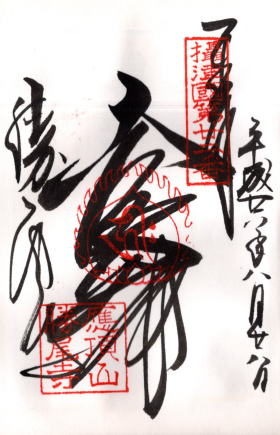 奉拝
攝津國第
平成廿八年八月廿八日
勝尾寺
應頂山
勝尾寺